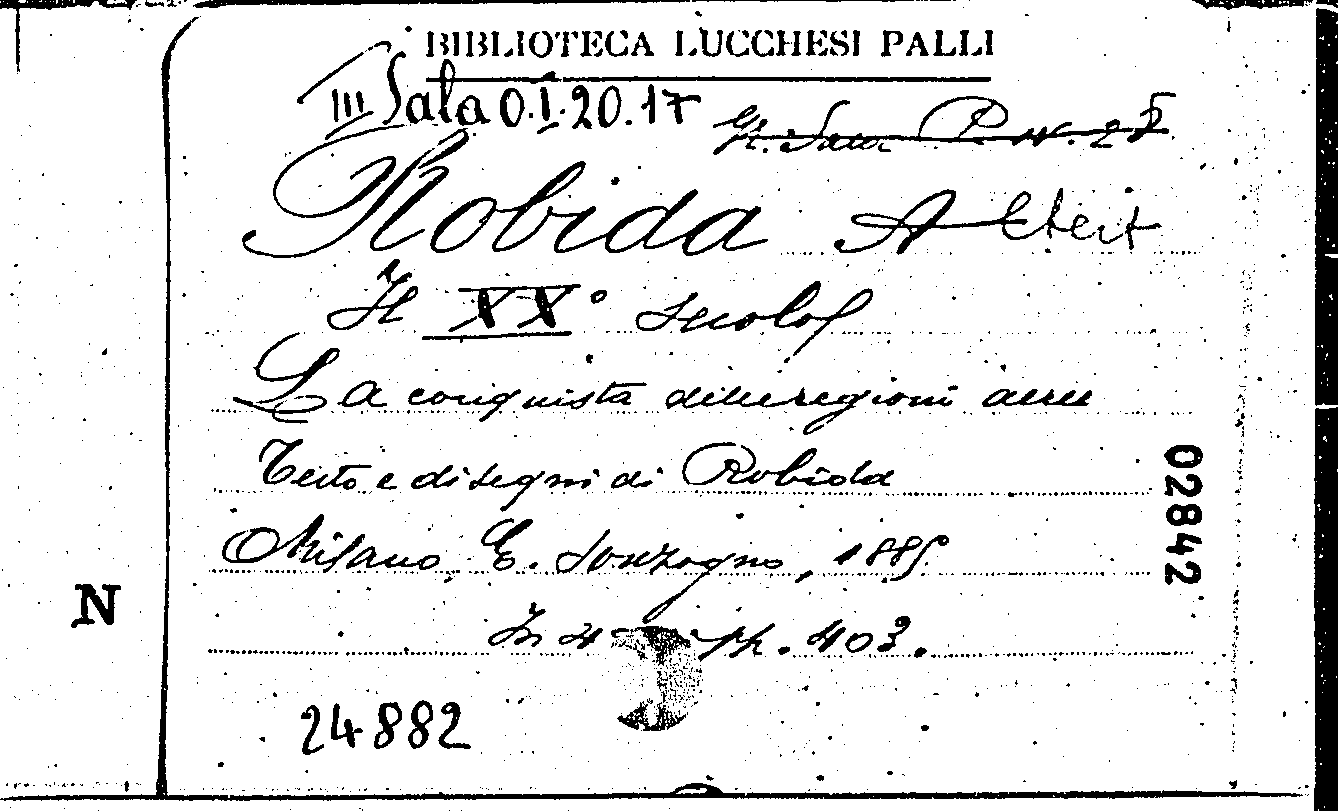 BIBLIOTECA LUCCHESI PALLI
III Sala O.I.20.17
Robida A
Il XX° secolo
La conquista delle regioni aeree
Testo e disegni di Robida
Milano, E. Sonzogno, 1885
In 4 pp. 403.
24882
02842
N